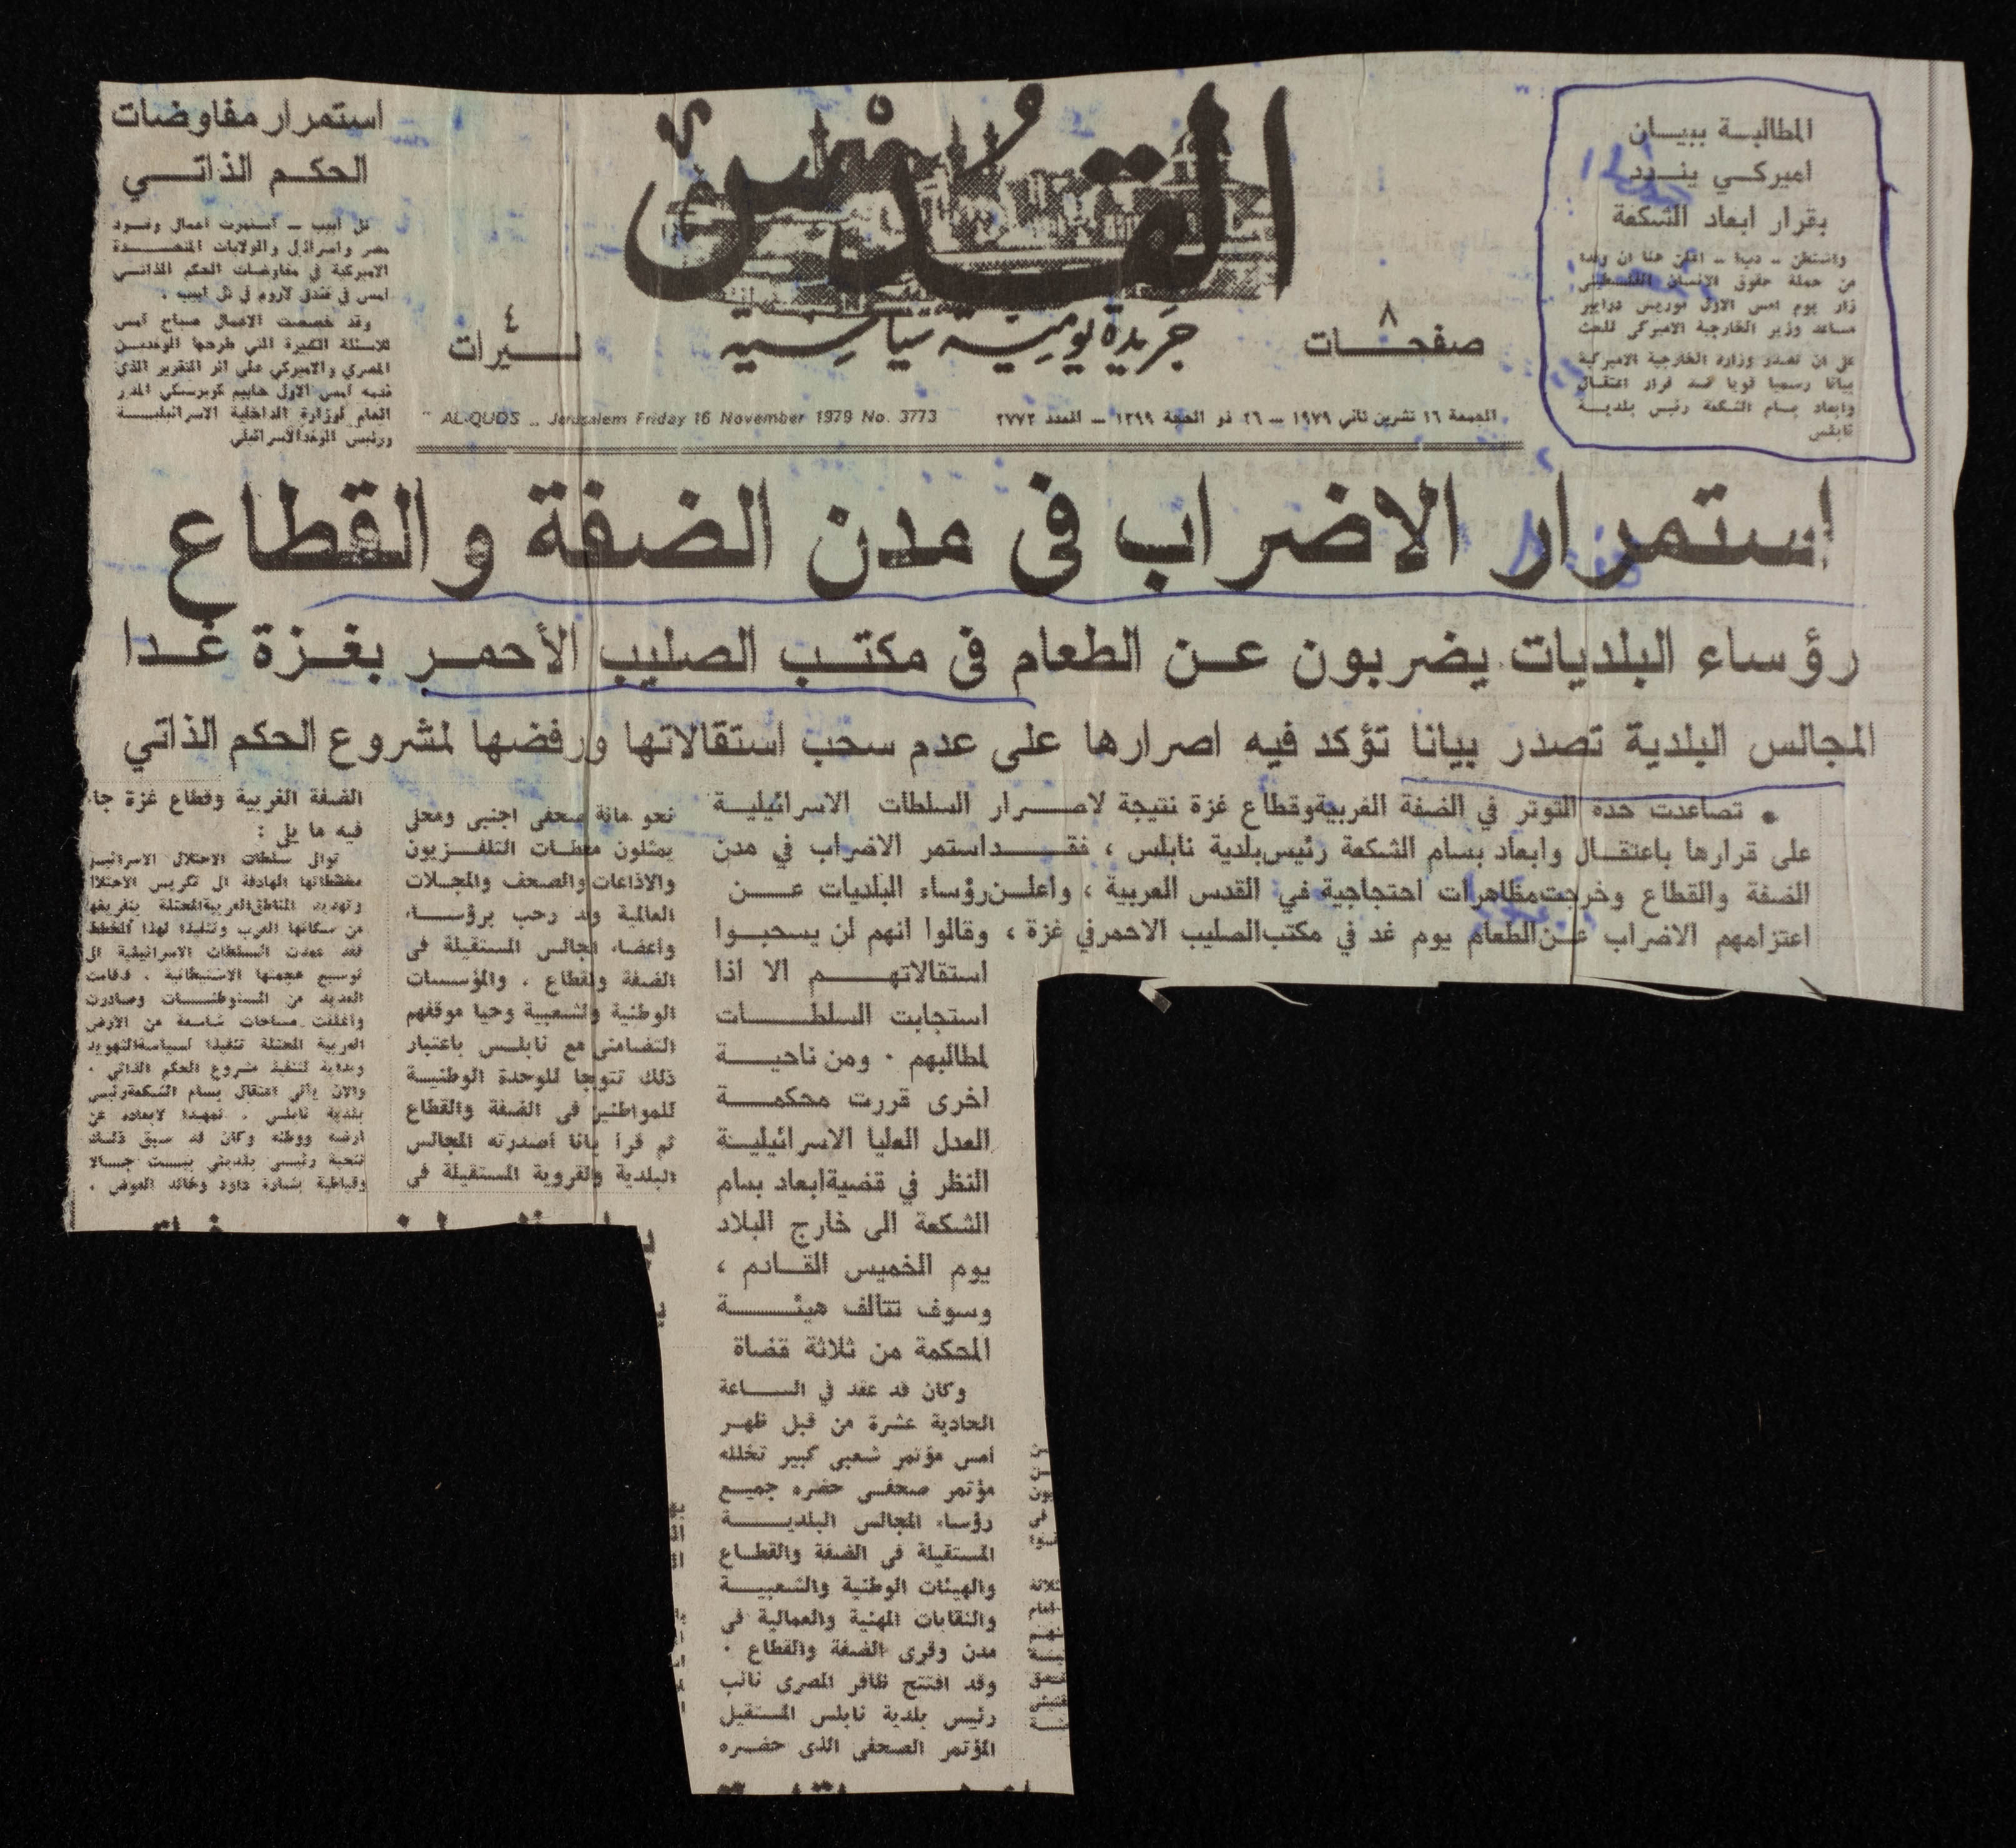 المطالبة ببيان
اميركي يندد
بقرار ابعاد الشكعة
واشنطن - دبا - اعلن هنا ان وفدا
من حملة حقوق الانسان الفلسطيني
زار يوم امس الاول موريس درايبر
مساعد وزير الخارجية الاميركي للحث
على ان تصدر وزارة الخارجية الاميركية
بيانا رسميا قويا ضد قرار اعتقال
وابعاد بسام الشكعة رئيس بلدية
نابلس
القدس
جريدة يومية سياسية
٨
صفحات
٤
ليرات
الجمعة ١٦ تشرين ثاني ١٩٧٩ - ٢٦ ذو الحجة ١٣٩٩ - العدد ٣٧٧٣
AL-QUDS .. Jerusalem Friday 16 November 1979 No. 3773
استمرار مفاوضات
الحكم الذاتي
تل ابيب - استمرت اعمال وفود
مصر واسرائيل والولايات المتحدة
الاميركية في مفاوضات الحكم الذاتي
امس في فندق لاروم في تل ابيب .
وقد خصصت الاعمال صباح امس
للاسئلة الكثيرة التي طرحها الوفدين
المصري والاميركي على اثر التقرير الذي
قدمه امس الاول حاييم كوبرسكي المدير
العام لوزارة الداخلية الاسرائيلية
ورئيس الوفد الاسرائيلي
استمرار الاضراب في مدن الضفة والقطاع
رؤساء البلديات يضربون عن الطعام في مكتب الصليب الأحمر بغزة غدا
المجالس البلدية تصدر بيانا تؤكد فيه اصرارها على عدم سحب استقالاتها ورفضها لمشروع الحكم الذاتي
• تصاعدت حدة التوتر في الضفة الغربية وقطاع غزة نتيجة لاصرار السلطات الاسرائيلية
على قرارها باعتقال وابعاد بسام الشكعة رئيس بلدية نابلس ، فقد استمر الاضراب في مدن
الضفة والقطاع وخرجت مظاهرات احتجاجية في القدس العربية ، واعلن رؤساء البلديات عن
اعتزامهم الاضراب عن الطعام يوم غد في مكتب الصليب الاحمر في غزة ، وقالوا انهم لن يسحبوا
استقالاتهم الا اذا
استجابت السلطات
لمطالبهم . ومن ناحية
اخرى قررت محكمة
العدل العليا الاسرائيلية
النظر في قضية ابعاد بسام
الشكعة الى خارج البلاد
يوم الخميس القادم ،
وسوف تتألف هيئة
المحكمة من ثلاثة قضاة
وكان قد عقد في الساعة
الحادية عشرة من قبل ظهر
امس مؤتمر شعبي كبير تخلله
مؤتمر صحفي حضره جميع
رؤساء المجالس البلدية
المستقيلة في الضفة والقطاع
والهيئات الوطنية والشعبية
والنقابات المهنية والعمالية في
مدن وقرى الضفة والقطاع .
وقد افتتح ظافر المصري نائب
رئيس بلدية نابلس المستقيل
المؤتمر الصحفي الذي حضره
نحو مائة صحفي اجنبي ومحلي
يمثلون محطات التلفزيون
والاذاعات والصحف والمجلات
العالمية وقد رحب برؤساء
واعضاء المجالس المستقيلة في
الضفة والقطاع . والمؤسسات
الوطنية والشعبية وحيا موقفهم
التضامني مع نابلس باعتبار
ذلك تتويجا للوحدة الوطنية
للمواطنين في الضفة والقطاع
ثم قرأ بيانا اصدرته المجالس
البلدية والقروية المستقيلة في
الضفة الغربية وقطاع غزة جاء
فيه ما يلي :
توالي سلطات الاحتلال الاسرائيلي
مخططاتها الهادفة الى تكريس الاحتلال
وتهويد المناطق العربية المحتلة بتفريغها
من سكانها العرب وتنفيذا لهذا المخطط
فقد عمدت السلطات الاسرائيلية الى
توسيع هجمتها الاستيطانية . فاقامت
العديد من المستوطنات وصادرت
واغلقت مساحات شاسعة من الارض
العربية المحتلة تنفيذا لسياسة التهويد
وبداية لتنفيذ مشروع الحكم الذاتي .
والان يأتي اعتقال بسام الشكعة رئيس
بلدية نابلس . تمهيدا لابعاده عن
ارضه ووطنه وكان قد سبق ذلك
تنحية رئيسي بلديتي بيت جالا
وقباطية بشارة داود وخالد العوض .